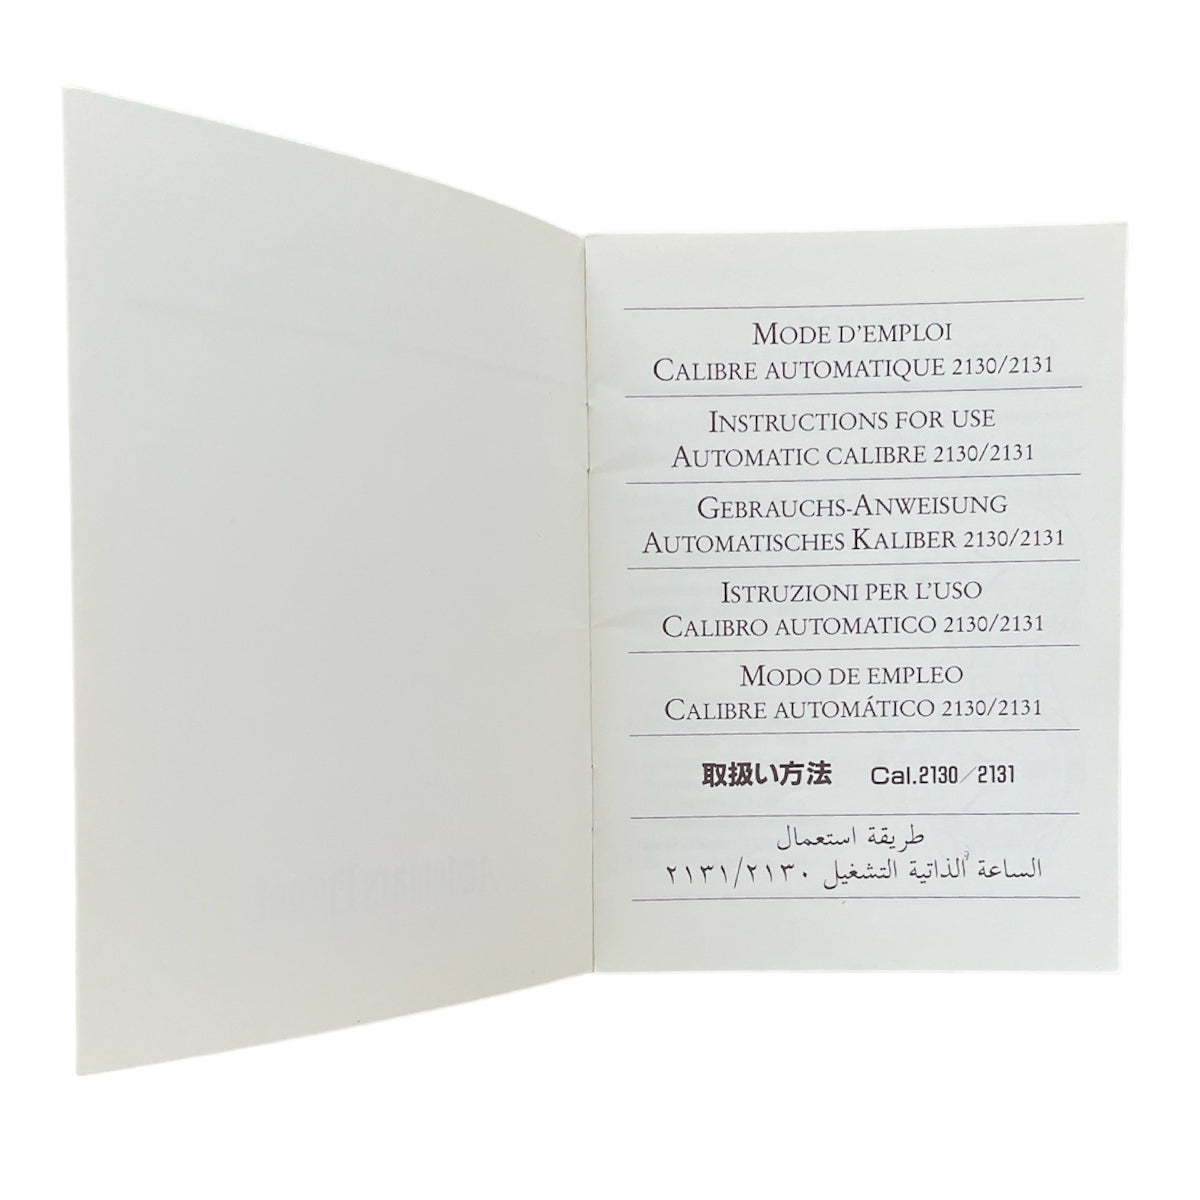 MODE D'EMPLOI
CALIBRE AUTOMATIQUE 2130/2131
INSTRUCTIONS FOR USE
AUTOMATIC CALIBRE 2130/2131
GEBRAUCHS-ANWEISUNG
AUTOMATISCHES KALIBER 2130/2131
ISTRUZIONI PER L'USO
CALIBRO AUTOMATICO 2130/2131
MODO DE EMPLEO
CALIBRE AUTOMÁTICO 2130/2131
取扱い方法 Cal.2130／2131
طريقة استعمال
الساعة الذاتية التشغيل ٢١٣١/٢١٣٠